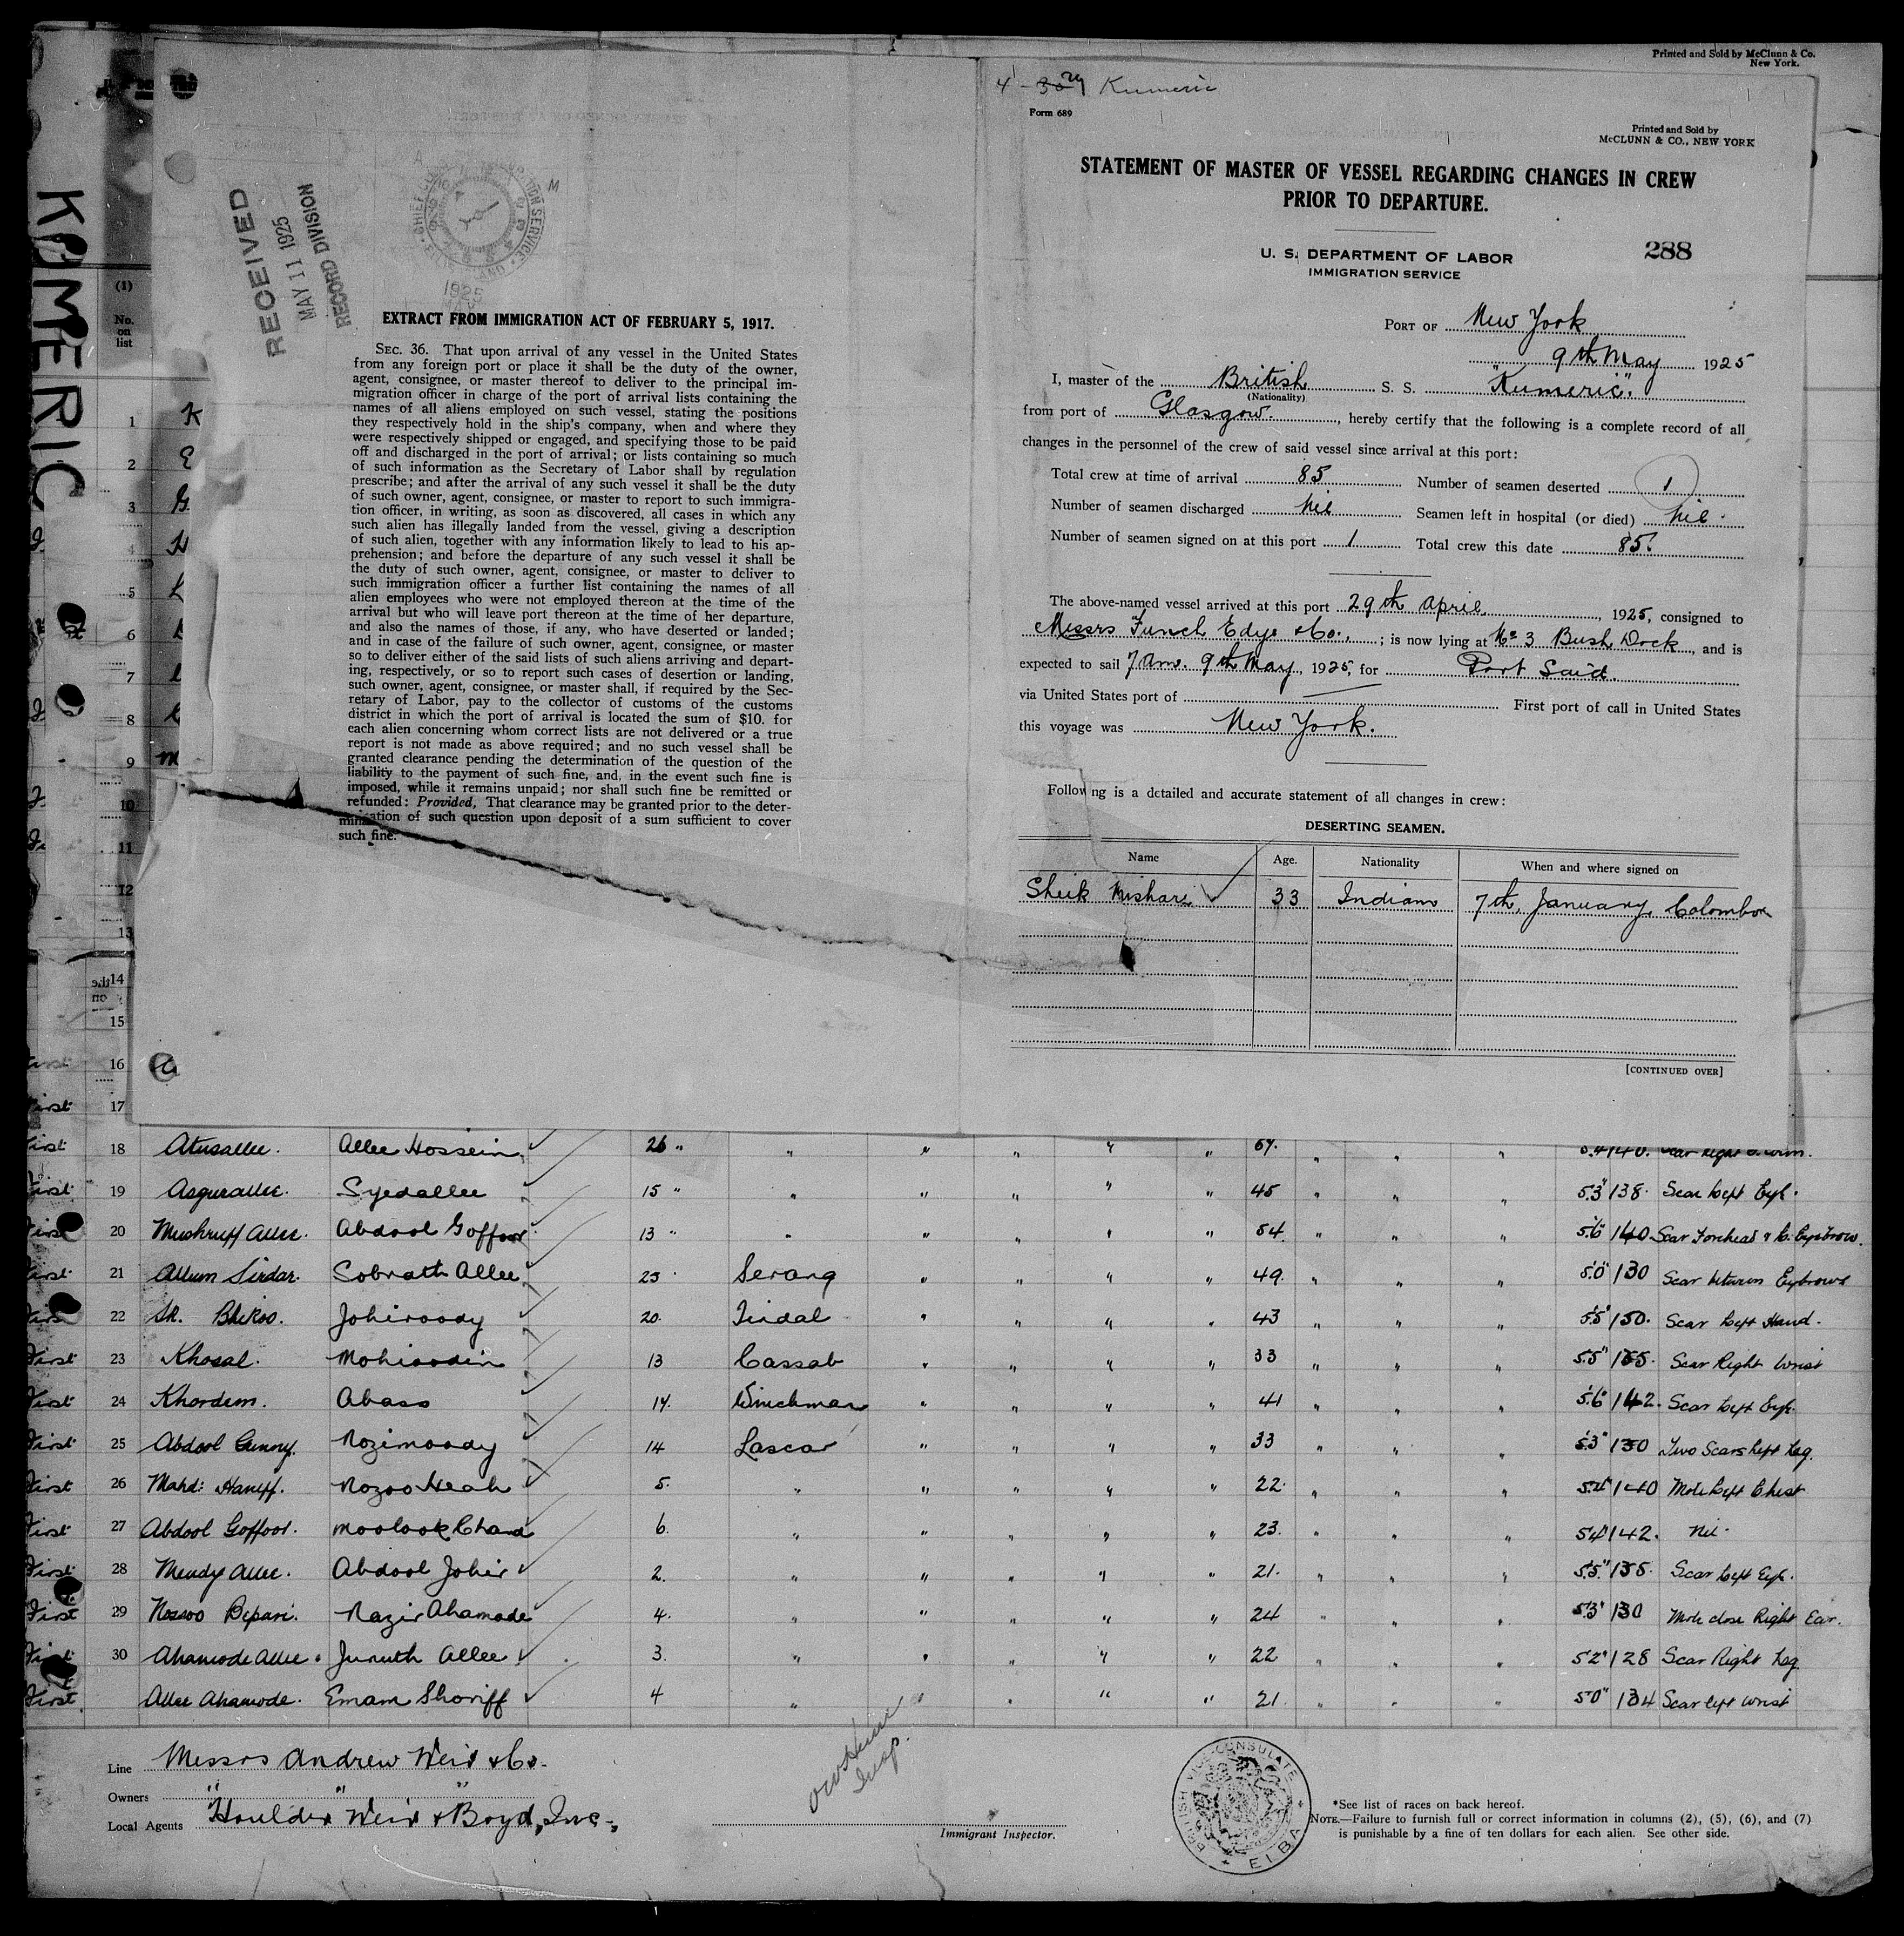 Printed and Sold by McClunn & Co.
New York.
KUMERIC
(1)
No.
on
list
RECEIVED
MAY 11 1925
RECORD DIVISION
1925
EXTRACT FROM IMMIGRATION ACT OF FEBRUARY 5, 1917.
SEC. 36. That upon arrival of any vessel in the United States
from any foreign port or place it shall be the duty of the owner,
agent, consignee, or master thereof to deliver to the principal im-
migration officer in charge of the port of arrival lists containing the
names of all aliens employed on such vessel, stating the positions
they respectively hold in the ship's company, when and where they
were respectively shipped or engaged, and specifying those to be paid
off and discharged in the port of arrival; or lists containing so much
of such information as the Secretary of Labor shall by regulation
prescribe; and after the arrival of any such vessel it shall be the duty
of such owner, agent, consignee, or master to report to such immigra-
tion officer, in writing, as soon as discovered, all cases in which any
such alien has illegally landed from the vessel, giving a description
of such alien, together with any information likely to lead to his ap-
prehension; and before the departure of any such vessel it shall be
the duty of such owner, agent, consignee, or master to deliver to
such immigration officer a further list containing the names of all
alien employees who were not employed thereon at the time of the
arrival but who will leave port thereon at the time of her departure,
and also the names of those, if any, who have deserted or landed;
and in case of the failure of such owner, agent, consignee, or master
so to deliver either of the said lists of such aliens arriving and depart-
ing, respectively, or so to report such cases of desertion or landing,
such owner, agent, consignee, or master shall, if required by the Sec-
retary of Labor, pay to the collector of customs of the customs
district in which the port of arrival is located the sum of $10. for
each alien concerning whom correct lists are not delivered or a true
report is not made as above required; and no such vessel shall be
granted clearance pending the determination of the question of the
liability to the payment of such fine, and, in the event such fine is
imposed, while it remains unpaid; nor shall such fine be remitted or
refunded: Provided, That clearance may be granted prior to the deter-
mination of such question upon deposit of a sum sufficient to cover
such fine.
Kumeric
Form 689
Printed and Sold by
McCLUNN & CO., NEW YORK
STATEMENT OF MASTER OF VESSEL REGARDING CHANGES IN CREW
PRIOR TO DEPARTURE.
U. S. DEPARTMENT OF LABOR
IMMIGRATION SERVICE
288
PORT OF New York
9th May 1925
I, master of the British S. S. "Kumeric".
(Nationality)
from port of Glasgow., hereby certify that the following is a complete record of all
changes in the personnel of the crew of said vessel since arrival at this port:
Total crew at time of arrival 85 Number of seamen deserted 1
Number of seamen discharged Nil Seamen left in hospital (or died) Nil.
Number of seamen signed on at this port 1 Total crew this date 85.
The above-named vessel arrived at this port 29th April, 1925, consigned to
Messrs Funch Edye & Co.,; is now lying at No 3 Bush Dock, and is
expected to sail 7 am. 9th May, 1925, for Port Said.
via United States port of First port of call in United States
this voyage was New York.
Following is a detailed and accurate statement of all changes in crew:
DESERTING SEAMEN.
Name Age. Nationality When and where signed on
Sheik 33 Indian 7th, January, Colombo
[CONTINUED OVER]
1 K
2 E
3 G
4 H
5
6
7
8
9 M
10
11
12
13
14
15
16
17
First 18 Atusallee. Allee Hossein 26 " " " " " " 57. " " " 5.4 140.
First 19 Asgurallee. Syedallee 15 " " " " " " 45 " " " 5.3" 138. Scar Left Eye.
First 20 Mushruff Allee. Abdool Goffoor 13 " " " " " " 54 " " " 5.6" 140. Scar Forehead & L. Eyebrow.
First 21 Allum Sirdar. Sobrath Allee 25 Serang " " " " 49. " " " 5.0" 130 Scar between Eyebrows
First 22 Sk. Bhikoo. Johiroody 20. Tindal " " " " 43 " " " 5.5" 150. Scar Left Hand.
First 23 Khosal. Mohioodin 13 Cassab " " " " 33 " " " 5.5" 155. Scar Right Wrist
First 24 Khordem. Abass 14. Winchman " " " " 41 " " " 5.6" 142. Scar Left Eye.
First 25 Abdool Gunny. Nozimoody 14 Lascar " " " " 33 " " " 5.3" 130 Two Scars Left Leg.
First 26 Mahd: Haniff. Nozoo Meah 5. " " " " " 22. " " " 5.4" 140 Mole Left Chest
First 27 Abdool Goffoor. Moolook Chand 6. " " " " " 23. " " " 5.4" 142. Nil.
First 28 Mendy Allee. Abdool Johir 2. " " " " " 21. " " " 5.5" 135. Scar Left Eye.
First 29 Nossoo Bepari. Nazir Ahamode 4. " " " " " 24 " " " 5.3" 130 Mole close Right Ear.
First 30 Ahamode Allee. Junuth Allee 3. " " " " " 22 " " " 5.2" 128 Scar Right Leg.
First Allee Ahamode. Emam Shoriff 4 " " " " " 21. " " " 5.0" 134 Scar left wrist
Line Messrs Andrew Weir & Co.
Owners
Local Agents "Houlder" Weir & Boyd, Inc.,
Insp.
Immigrant Inspector.
BRITISH VICE-CONSULATE
ELBA
*See list of races on back hereof.
NOTE.—Failure to furnish full or correct information in columns (2), (5), (6), and (7)
is punishable by a fine of ten dollars for each alien. See other side.